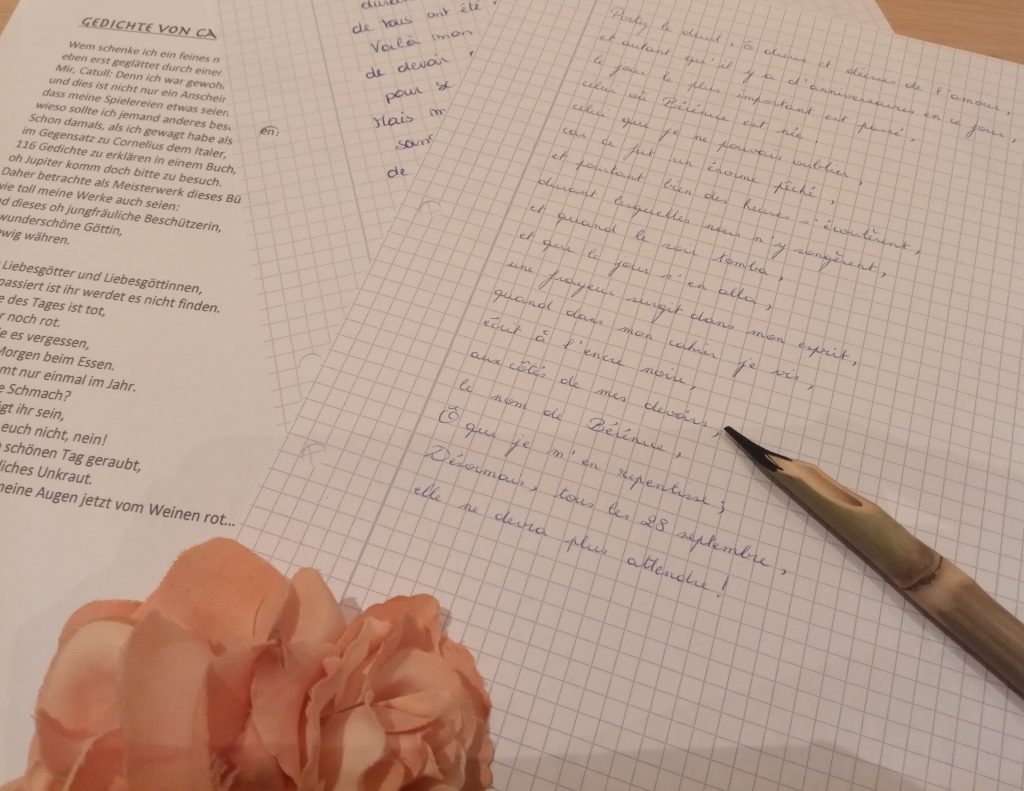 GEDICHTE VON CA
Wem schenke ich ein feines n
eben erst geglättet durch einer
Mir, Catull: Denn ich war gewoh
und dies ist nicht nur ein Anschein
dass meine Spielereien etwas seien
wieso sollte ich jemand anderes bes
Schon damals, als ich gewagt habe als
im Gegensatz zu Cornelius dem Italer,
116 Gedichte zu erklären in einem Buch,
oh Jupiter komm doch bitte zu besuch.
Daher betrachte als Meisterwerk dieses Bü
wie toll meine Werke auch seien:
d dieses oh jungfräuliche Beschützerin,
wunderschöne Göttin,
ewig währen.
Liebesgötter und Liebesgöttinnen,
passiert ist ihr werdet es nicht finden.
e des Tages ist tot,
r noch rot.
ie es vergessen,
Morgen beim Essen.
mt nur einmal im Jahr.
e Schmach?
igt ihr sein,
euch nicht, nein!
schönen Tag geraubt,
liches Unkraut.
meine Augen jetzt vom Weinen rot...
en,
de tous ont été
Voilà mon
de devoir,
pour se
Mais m
san
de
Portez le deuil, Ô dieux et déesses de l'amour,
et autant qu'il y a d'anniversaires en ce jour,
le jour le plus important est passé,
celui où Bérénice est née,
celui que je ne pouvais oublier,
car ce fut un énorme péché,
et pourtant bien des heures s'écoulèrent,
durant lesquelles nous n'y songèrent,
et quand le soir tomba,
et que le jour s'en alla,
une frayeur surgit dans mon esprit,
quand dans mon cahier je vis,
écrit à l'encre noire,
aux côtés de mes devoirs,
le nom de Bérénice,
Ô que je m'en repentisse;
Désormais, tous les 28 septembre,
elle ne devra plus attendre!